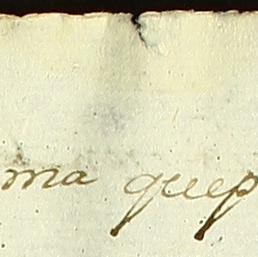 ma quep